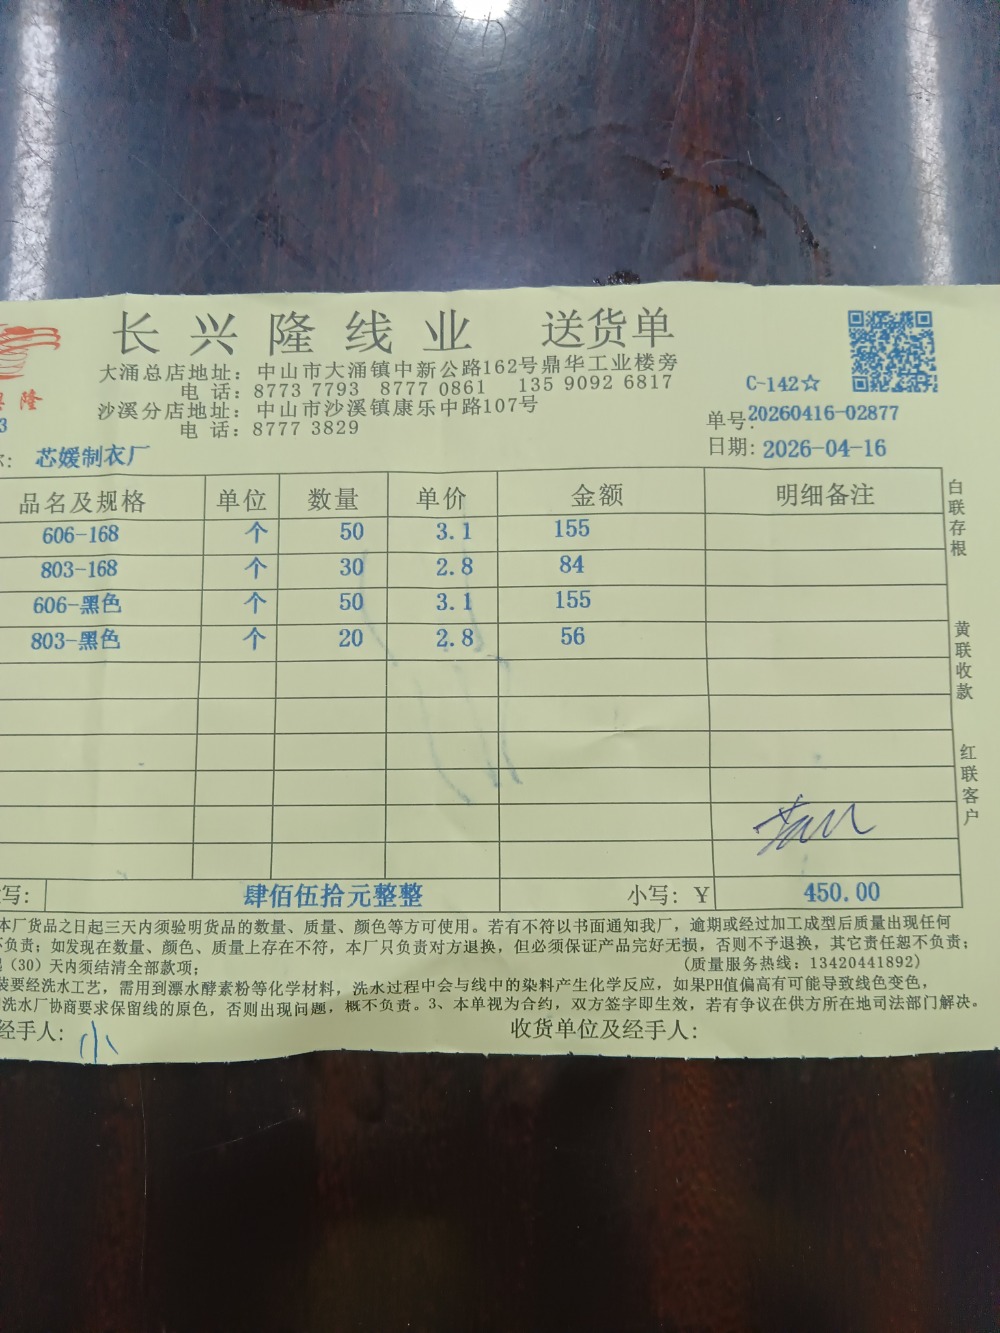 长兴隆线业 送货单
大涌总店地址：中山市大涌镇中新公路162号鼎华工业楼旁
电 话：8773 7793 8777 0861 135 9092 6817
沙溪分店地址：中山市沙溪镇康乐中路107号
电 话：8777 3829
隆
3
C-142☆
单号:20260416-02877
日期: 2026-04-16
芯媛制衣厂
品名及规格 单位 数量 单价 金额 明细备注
606-168 个 50 3.1 155
803-168 个 30 2.8 84
606-黑色 个 50 3.1 155
803-黑色 个 20 2.8 56
白联存根
黄联收款
红联客户
写: 肆佰伍拾元整整 小写: ¥ 450.00
本厂货品之日起三天内须验明货品的数量、质量、颜色等方可使用。若有不符以书面通知我厂，逾期或经过加工成型后质量出现任何
负责；如发现在数量、颜色、质量上存在不符，本厂只负责对方退换，但必须保证产品完好无损，否则不予退换，其它责任恕不负责；
（30）天内须结清全部款项； （质量服务热线：13420441892）
装要经洗水工艺，需用到漂水酵素粉等化学材料，洗水过程中会与线中的染料产生化学反应，如果PH值偏高有可能导致线色变色，
洗水厂协商要求保留线的原色，否则出现问题，概不负责。3、本单视为合约，双方签字即生效，若有争议在供方所在地司法部门解决。
经手人: 小 收货单位及经手人: